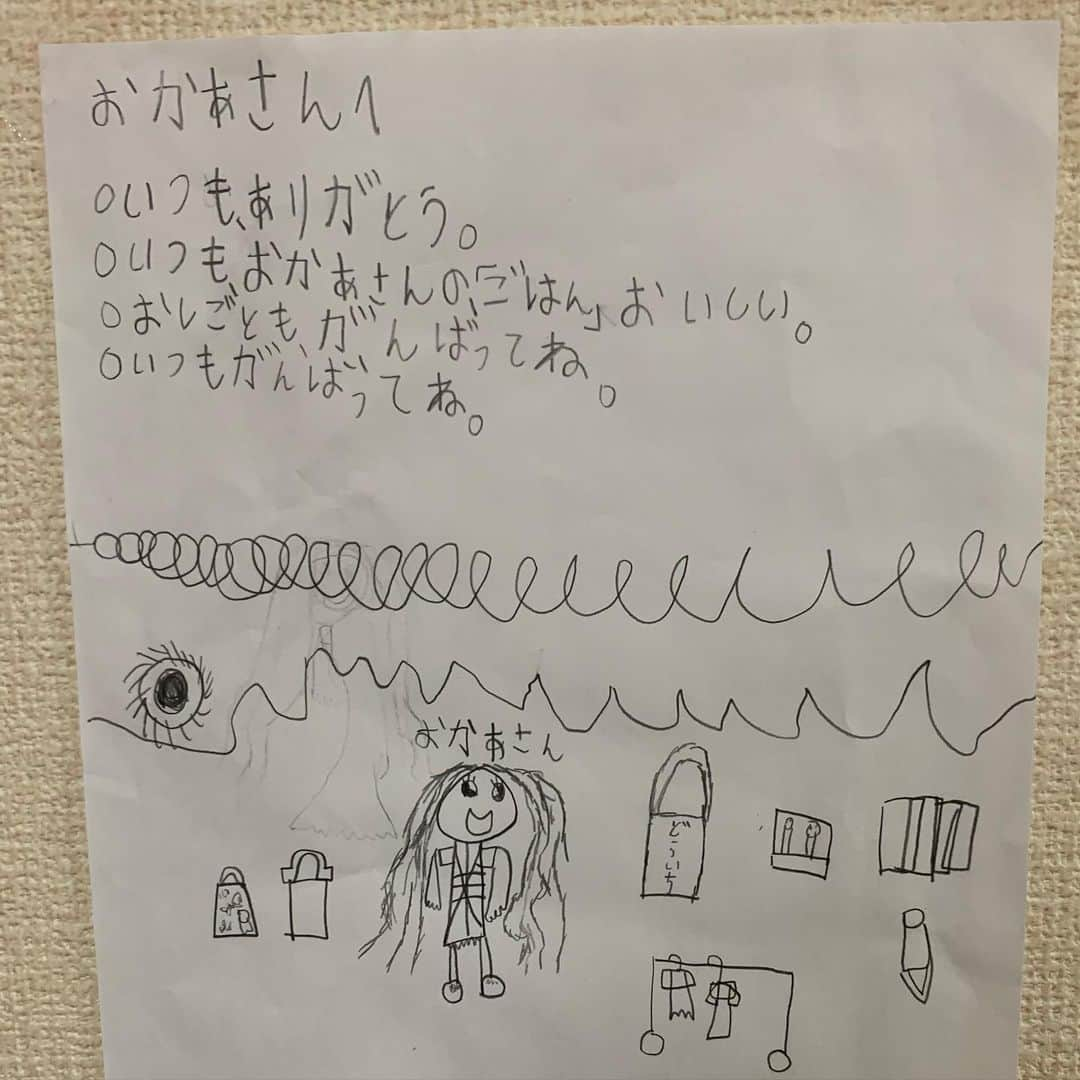 おかあさんへ
○いつも、ありがとう。
○いつも、おかあさんの、「ごはん」おいしい。
○おしごとも、がんばってね。
○いつもがんばってね。
おかあさん
どういち